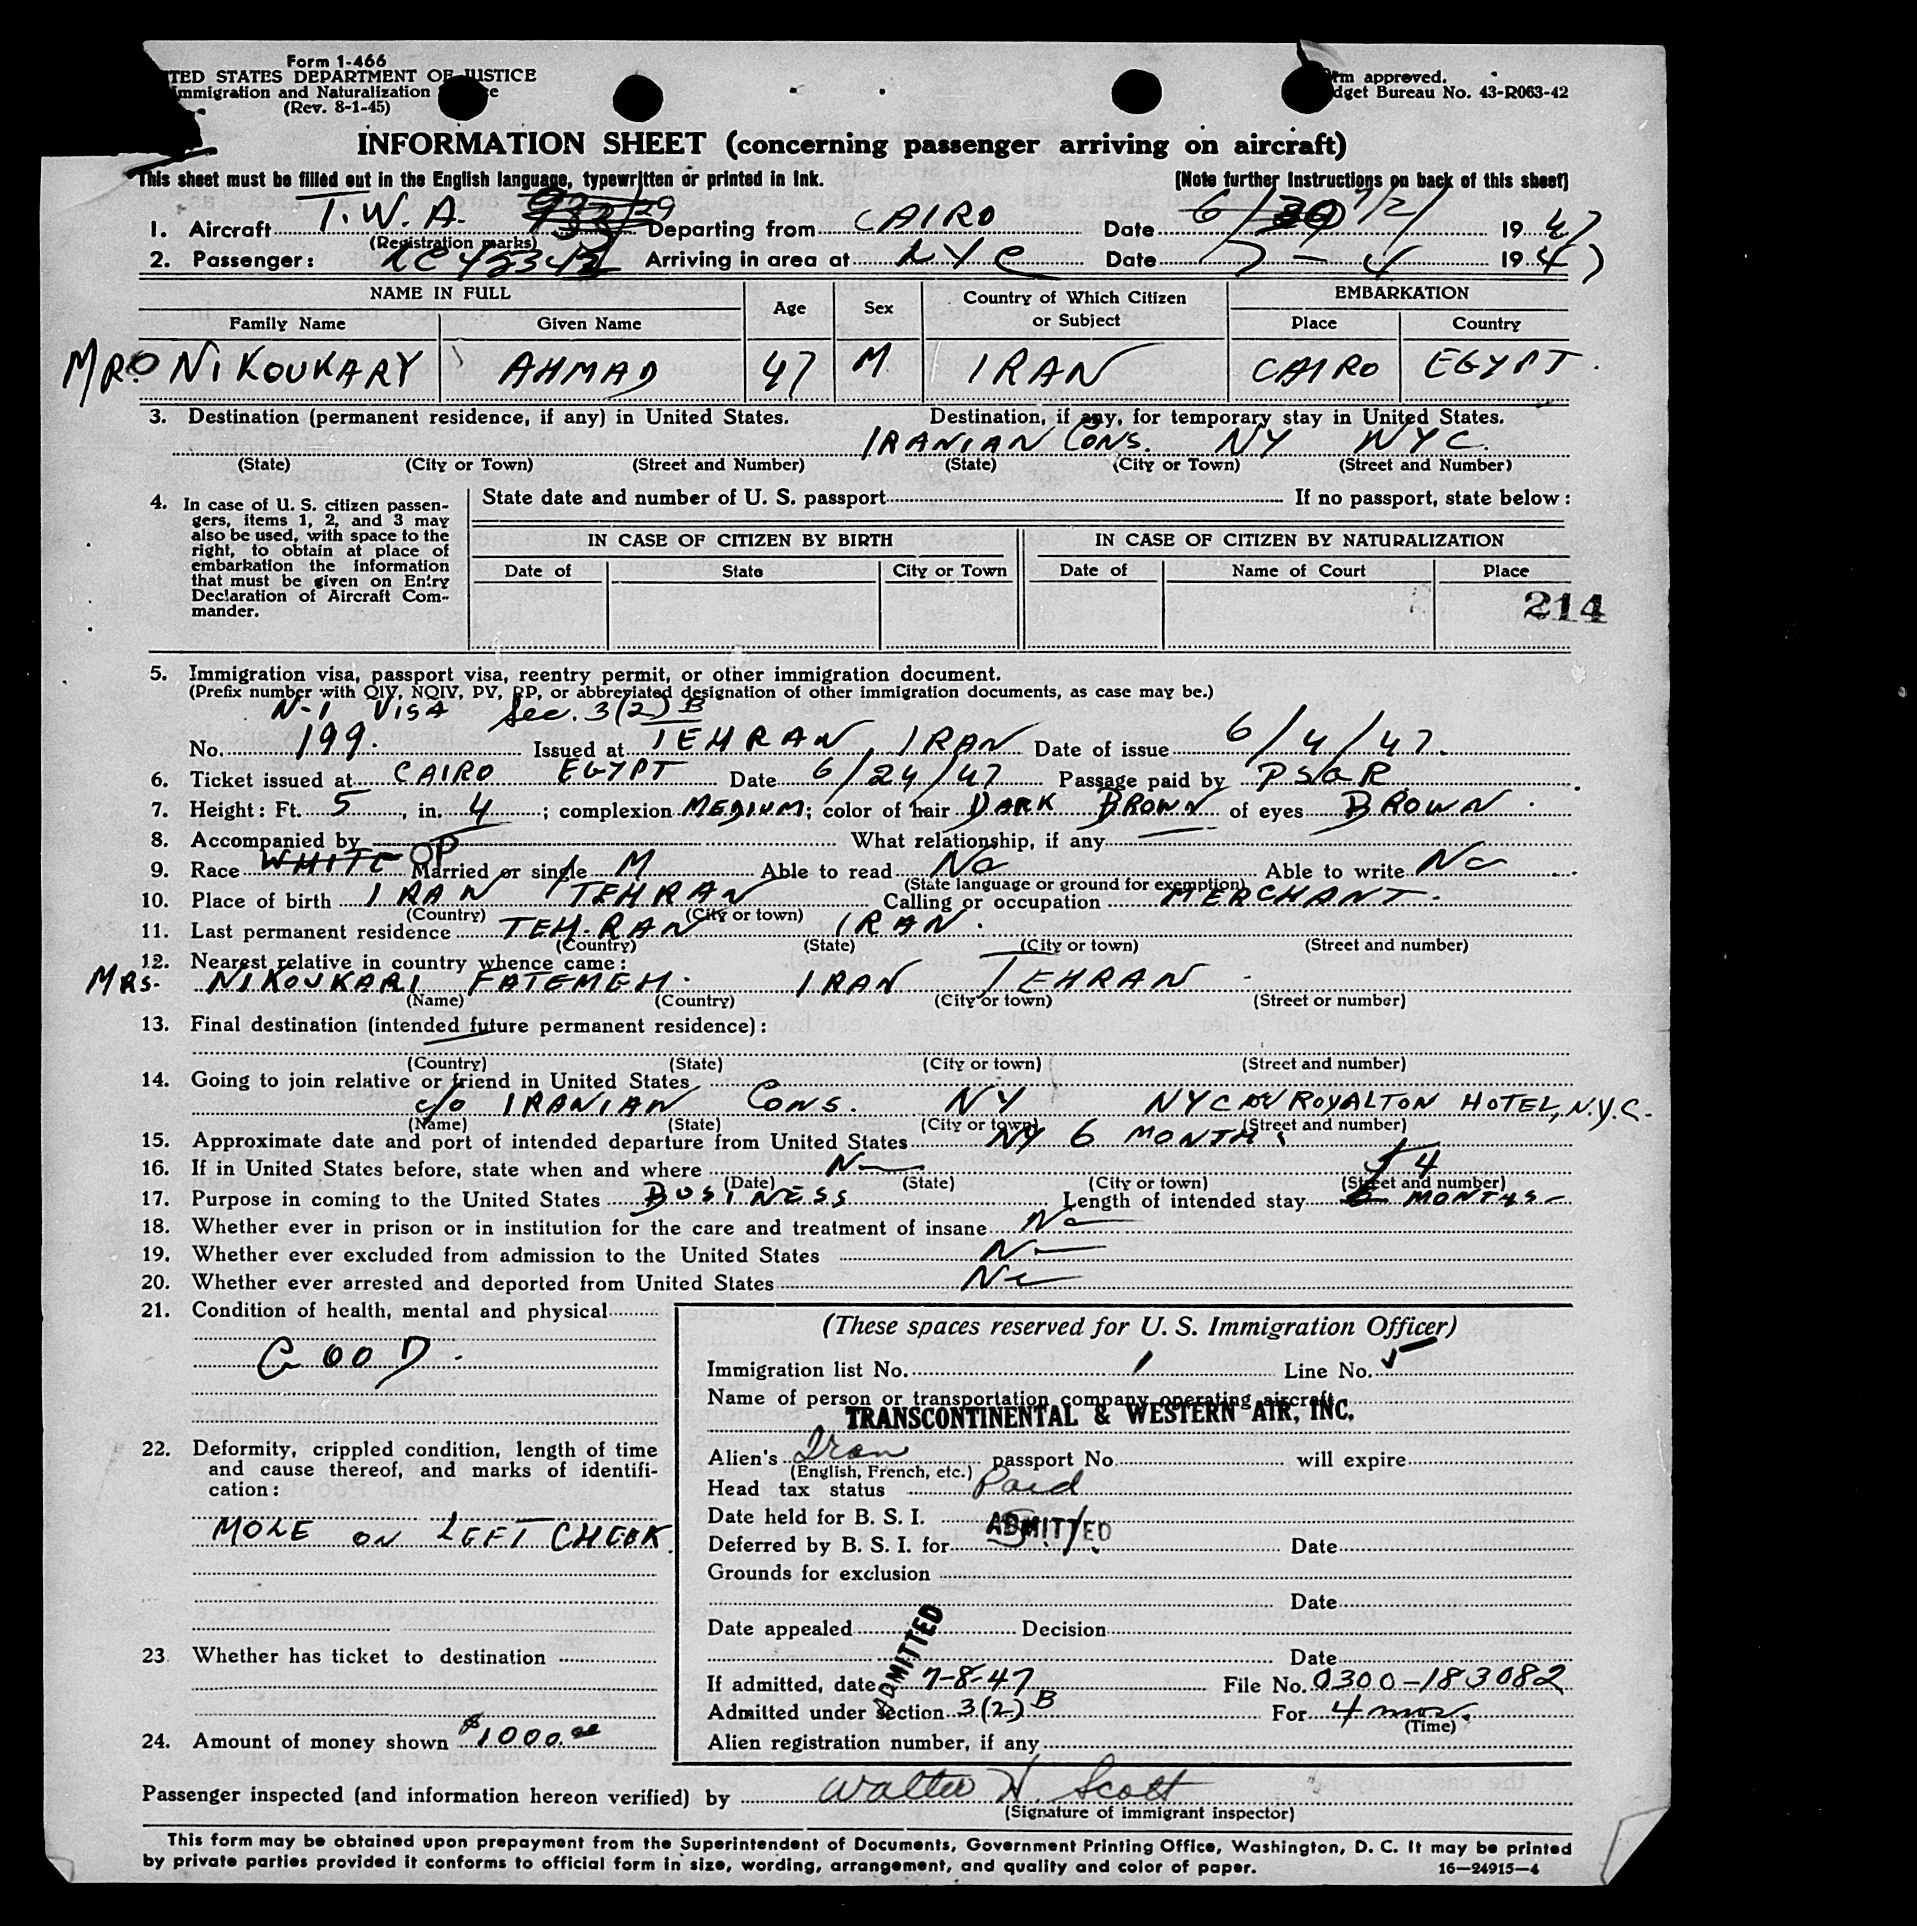 Form 1-466
TED STATES DEPARTMENT OF JUSTICE
Immigration and Naturalization
(Rev. 8-1-45)
approved.
dget Bureau No. 43-R063-42
INFORMATION SHEET (concerning passenger arriving on aircraft)
This sheet must be filled out in the English language, typewritten or printed in ink.
[Note further instructions on back of this sheet]
1. Aircraft T.W.A. Departing from CAIRO Date 7/2/ 1947
(Registration marks)
2. Passenger: Arriving in area at NYC Date 7-4 1947
NAME IN FULL Age Sex Country of Which Citizen or Subject EMBARKATION
Family Name Given Name Place Country
MR. NIKOUKARY AHMAD 47 M IRAN CAIRO EGYPT.
3. Destination (permanent residence, if any) in United States. Destination, if any, for temporary stay in United States.
IRANIAN CONS. NY NYC.
(State) (City or Town) (Street and Number) (State) (City or Town) (Street and Number)
4. In case of U. S. citizen passen-
gers, items 1, 2, and 3 may
also be used, with space to the
right, to obtain at place of
embarkation the information
that must be given on Entry
Declaration of Aircraft Com-
mander.
State date and number of U. S. passport If no passport, state below:
IN CASE OF CITIZEN BY BIRTH IN CASE OF CITIZEN BY NATURALIZATION
Date of State City or Town Date of Name of Court Place
214
5. Immigration visa, passport visa, reentry permit, or other immigration document.
(Prefix number with QIV, NQIV, PV, RP, or abbreviated designation of other immigration documents, as case may be.)
N-1 VISA Sec. 3(2) B
No. 199. Issued at TEHRAN, IRAN Date of issue 6/4/47.
6. Ticket issued at CAIRO EGYPT Date 6/24/47 Passage paid by PSGR.
7. Height: Ft. 5, in. 4; complexion MEDIUM; color of hair DARK BROWN of eyes BROWN.
8. Accompanied by What relationship, if any
9. Race WHITE OP Married or single M Able to read No Able to write No
(State language or ground for exemption)
10. Place of birth IRAN TEHRAN Calling or occupation MERCHANT.
(Country) (City or town)
11. Last permanent residence TEHRAN IRAN.
(Country) (State) (City or town) (Street and number)
12. Nearest relative in country whence came:
MRS. NIKOUKARI FATEMEH. IRAN TEHRAN
(Name) (Country) (City or town) (Street or number)
13. Final destination (intended future permanent residence):
(Country) (State) (City or town) (Street and number)
14. Going to join relative or friend in United States
c/o IRANIAN CONS. NY NYC ROYALTON HOTEL, N.Y.C.
(Name) (State) (City or town) (Street and number)
15. Approximate date and port of intended departure from United States NY 6 MONTHS
16. If in United States before, state when and where No
(Date) (State) (City or town) (Street and number)
17. Purpose in coming to the United States BUSINESS Length of intended stay 4 MONTHS
18. Whether ever in prison or in institution for the care and treatment of insane No
19. Whether ever excluded from admission to the United States No
20. Whether ever arrested and deported from United States No
21. Condition of health, mental and physical
GOOD.
22. Deformity, crippled condition, length of time
and cause thereof, and marks of identifi-
cation:
MOLE ON LEFT CHEEK.
23. Whether has ticket to destination
24. Amount of money shown $1000.00
(These spaces reserved for U. S. Immigration Officer)
Immigration list No. 1 Line No. 5
Name of person or transportation company operating aircraft
TRANSCONTINENTAL & WESTERN AIR, INC.
Alien's Iran passport No. will expire
(English, French, etc.)
Head tax status Paid
Date held for B. S. I.
ADMITTED
Deferred by B. S. I. for Date
Grounds for exclusion
Date
Date appealed Decision
ADMITTED
Date
If admitted, date 7-8-47 File No. 0300-183082
Admitted under section 3(2) B For 4 mos.
(Time)
Alien registration number, if any
Passenger inspected (and information hereon verified) by Walter H. Scott
(Signature of immigrant inspector)
This form may be obtained upon prepayment from the Superintendent of Documents, Government Printing Office, Washington, D. C. It may be printed
by private parties provided it conforms to official form in size, wording, arrangement, and quality and color of paper. 16—24915-4